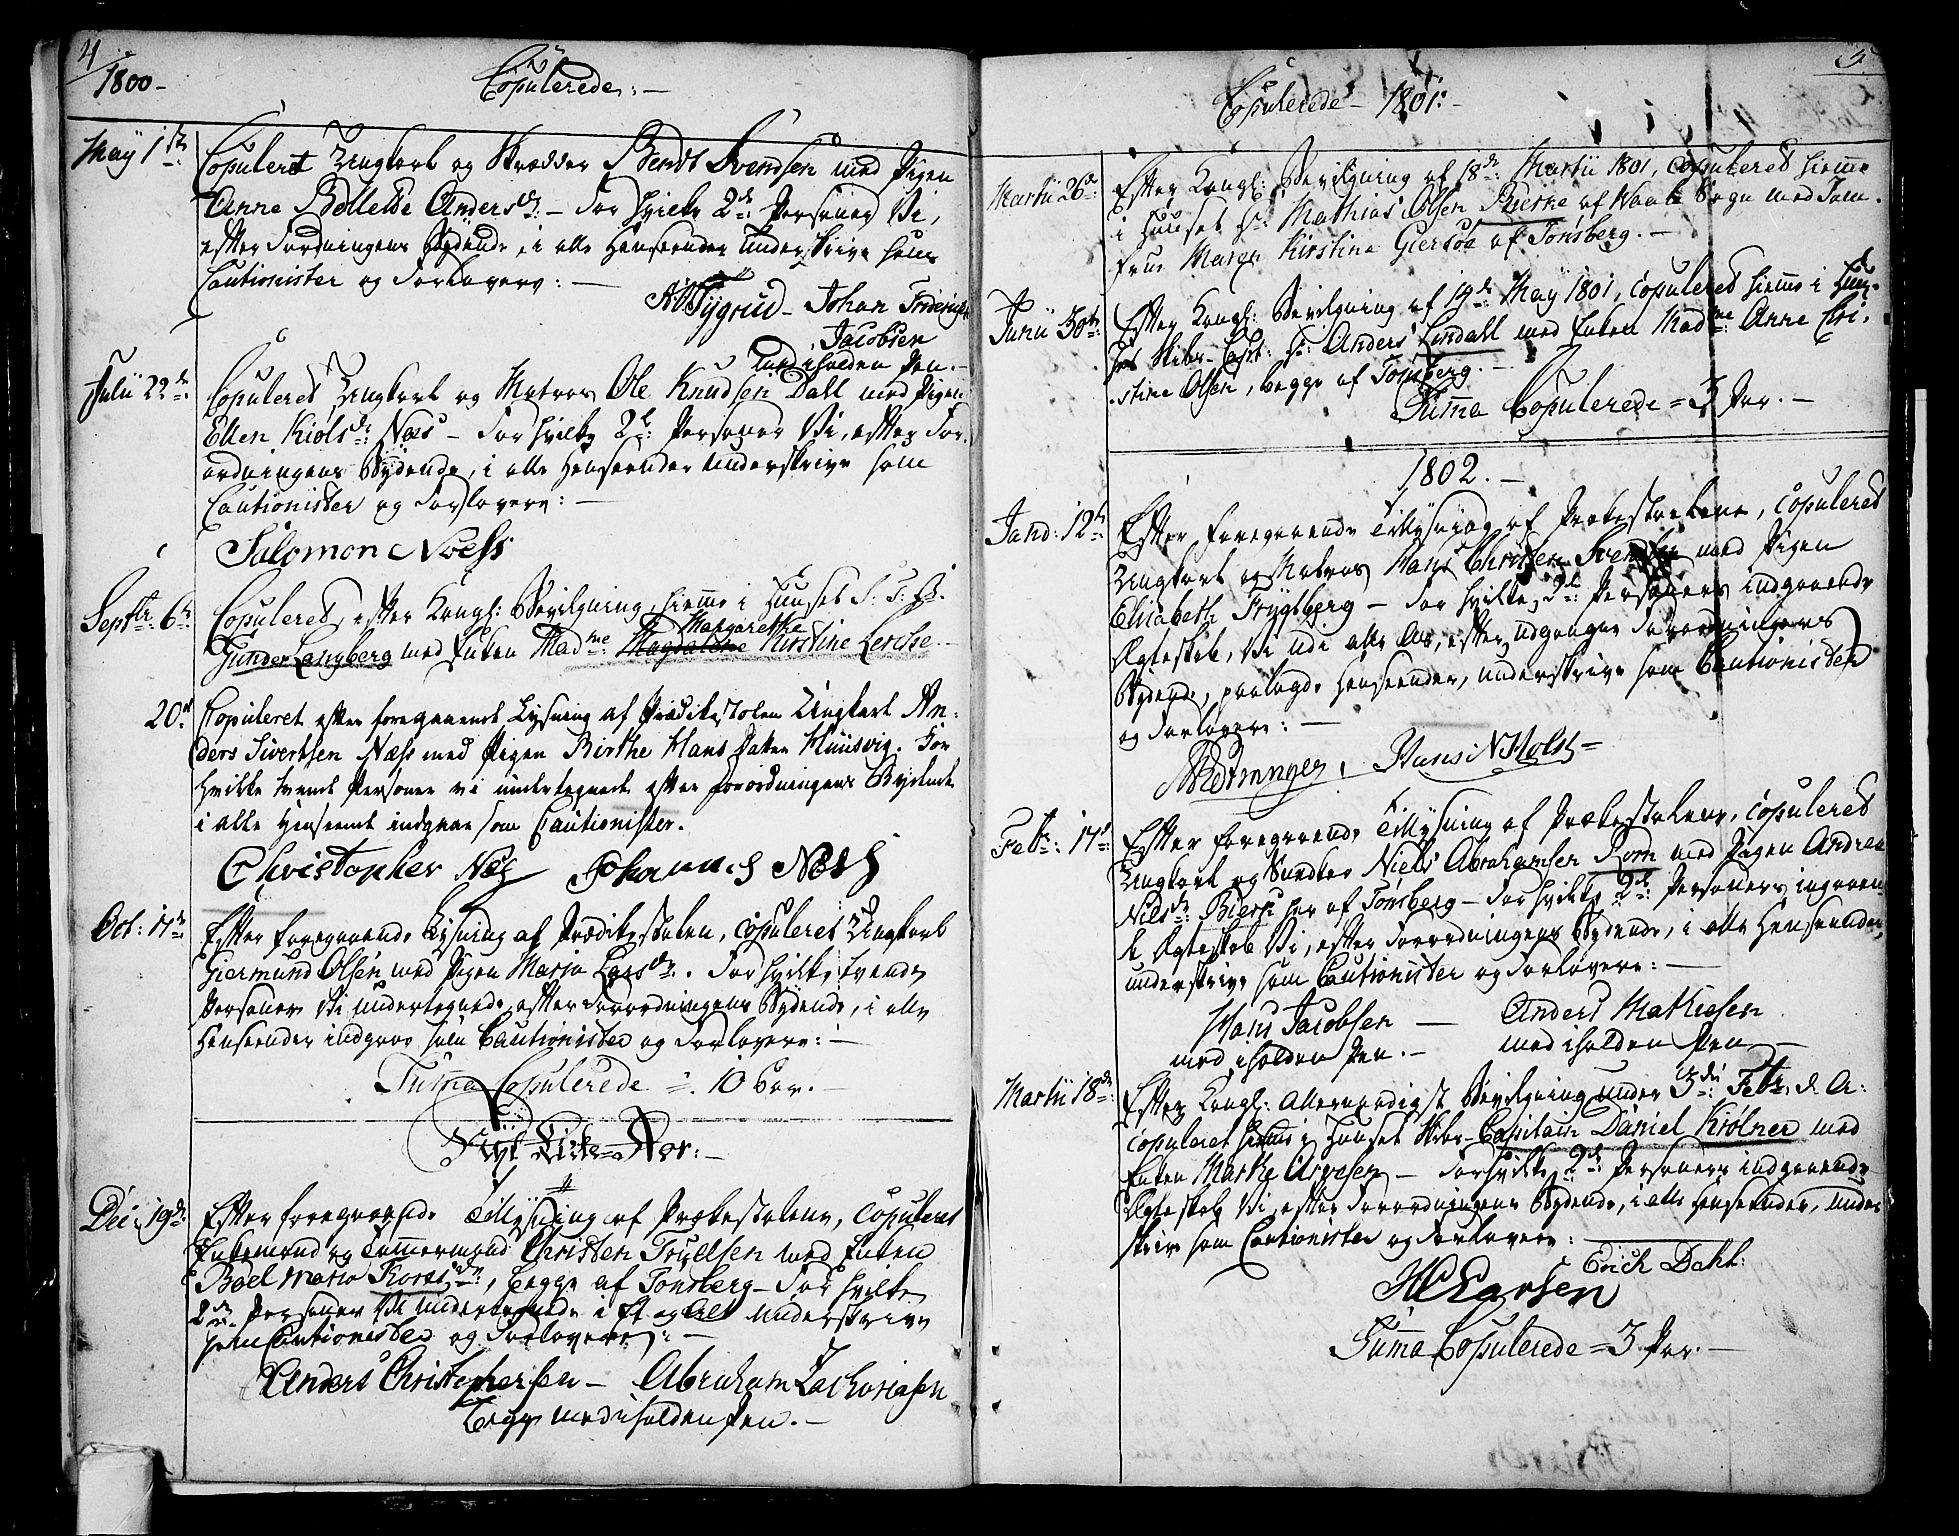 4
1800 -
Copulerede: -
May 1ste Copuleret Ungkarl og Skrædder Bendt Svendsen med Pigen
Anne Bollette Andersdr: - For hvilke 2de Personer Vi,
efter Forordningens Bydende, i alle Henseender underskrive som
Cautionister og Forlovere: -
Tygrud - Johan Friderich
Jacobsen
med iholden Pen. -
Julii 22de: Copuleret Ungkarl og Matros Ole Knudsen Dall med Pigen
Ellen Kiølsdr: Næs - For hvilke 2de: Personer Vi, efter For-
ordningens Bydende, i alle Henseender underskrive som
Cautionister og Forlovere: -
Salomon Noess
Septbr: 6te Copulered, efter Kongl: Bevilgning, hiemme i Huuset S: T: Hr.
Margarethe
Gunder Langberg med Enken Madme: Magdalene Kirstine Lerche -
20de Copuleret efter foregaaende Lysning af Prædikestolen Ungkarl An-
ders Sivertsen Næss med Pigen Birthe Hans Datter Huusvig. For
hvilke tvende Personer vi undertegnede efter forordningens Bydende
i alle Henseende indgaae som Cautionister.
Christopher Næs Johannes Næss
Oct: 17de Efter foregaaende Lysning af Prædikestolen, copuleret Ungkarl
Giermund Olsen med Pigen Maria Larsdr:. For hvilke tvende
Personer Vi undertegnede, efter Forordningens Bydende, i alle
Henseender indgaae som Cautionister og Forlovere: -
Summa Copulerede = 10 Par. -
Nyt Kirke-Aar: -
Dec: 19de: Efter foregaaende Tillysning af Prækestolene, Copuleret
Enkemand og Tømmermand Christen Truelsen med Enken
Boel Maria Korsdr:, begge af Tønsberg - For hvilke
2de Personer Vi undertegnede i Et og Alt underskrive
som Cautionister og Forlovere: -
Anders Christophersen - Abraham Zachariasen
begge med iholden Pen. -
5
Copulerede - 1801: -
Martii 26de Efter Kongl: Bevilgning af 18de: Martii 1801, copuleret hiemme
i Huuset Hr: Mathias Olsen Bierke af Vaale Sogn med Jom-
frue Maren Kirstina Giersøe af Tønsberg. -
Junii 30te: Efter Kongl: Bevilgning af 19de May 1801, copuleret hiemme i Huu-
set Skibs-Capt: Hr: Anders Lindall med Enken Madme: Anne Chri-
stine Olsen, begge af Tønsberg. -
Summa Copulerede = 3 Par. -
1802. -
Januar: 12te Efter foregaaende Tillysning af Prækestolene, copuleret
Ungkarl og Matros Hans Christen Svendsen med Pigen
Elisabeth Trygsberg - For hvilke 2de: Personers indgaaende
Ægteskab, Vi udi alle Ord, efter udgangne Forordningers
Bydende, paalagde Henseender, underskrive som Cautionister
og Forlovere: -
Hans N Holst =
Febr: 17de Efter foregaaende Tillysning af Prækestolene, copuleret
Ungkarl og Snedker Niels Abrahamsen Rom med Pigen Andrea
Nilsdr: Bierke her af Tønsberg - For hvilke 2de: Personers ingaaen-
de Ægteskab Vi, efter Forordningens Bydende, i alle Henseender,
underskrive som Cautionister og Forlovere: -
Hans Jacobsen - Anders Mathiesen
med iholden Pen. - med iholden Pen -
Martii 18de: Efter Kongl: Allernaadigst Bevilgning under 3die: Febr. d: A:
copuleret hiemme i Huuset Skibs-Capitain Daniel Kiølner med
Enken Marthe Arvesen - For hvilke 2de: Personers indgaaende
Ægteskab Vi, efter Forordningens Bydende, i alle Henseender, under-
skrive som Cautionister og Forlovere:
Erich Dahl:
Larsen
Summa Copulerede = 3 Par. -